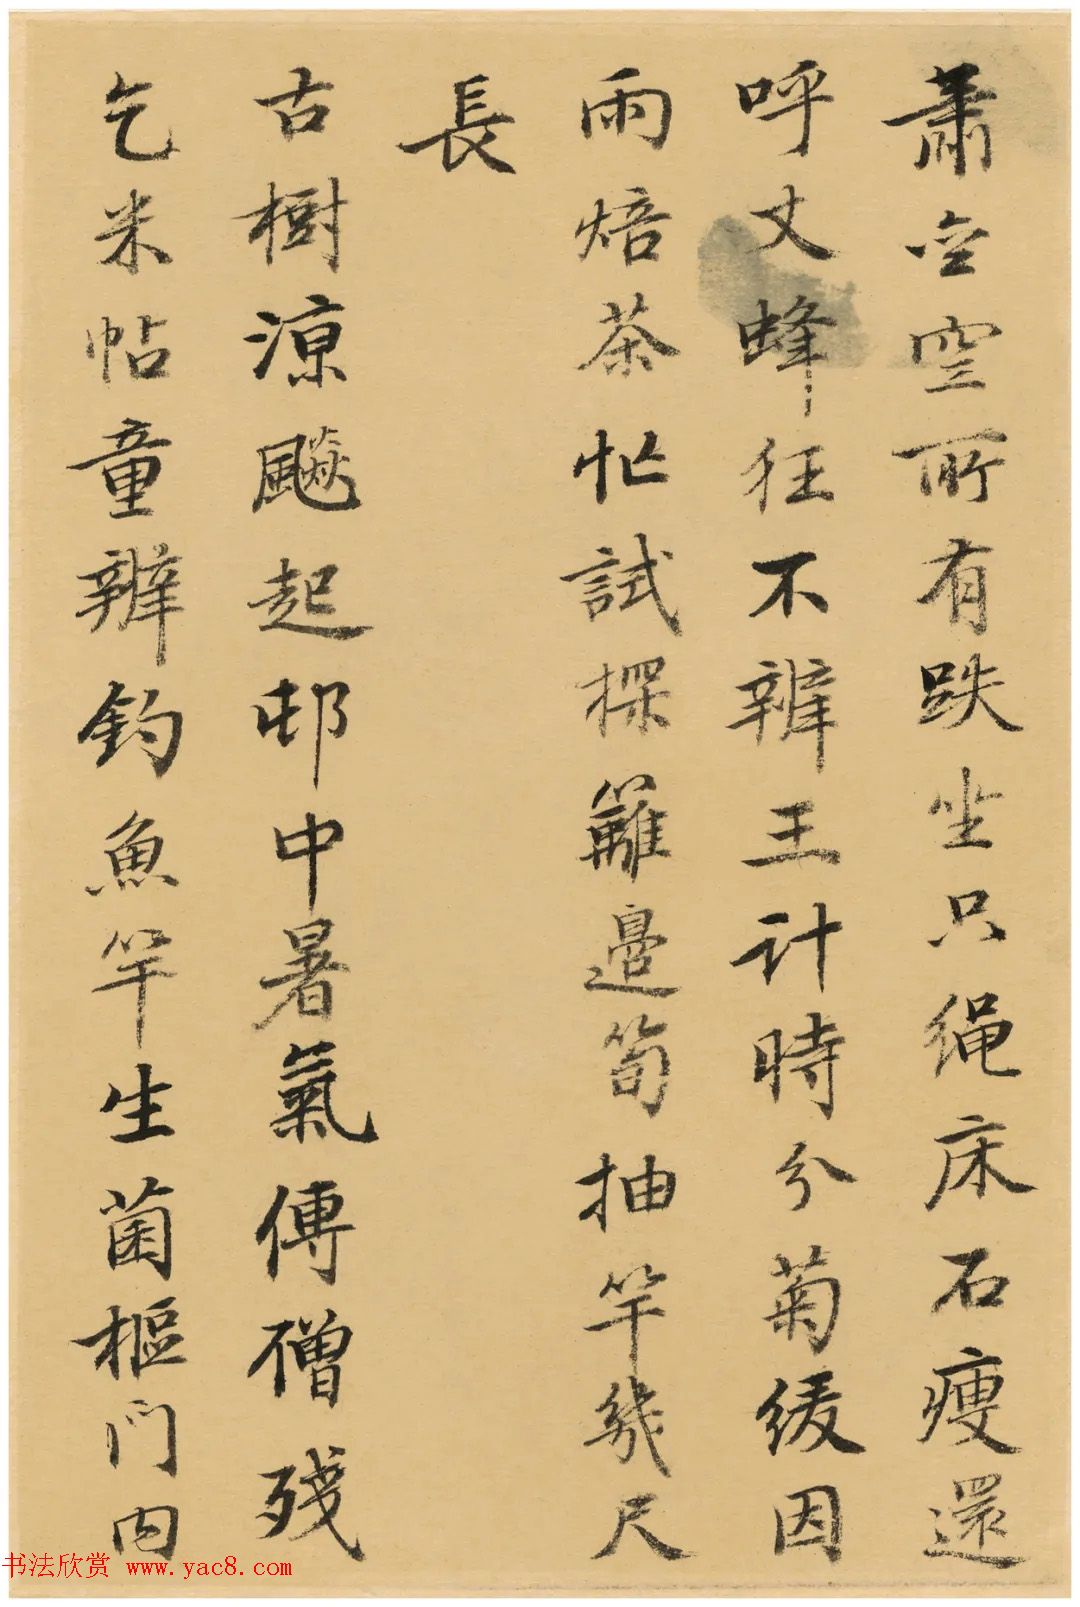 肅空室所有趺坐只绳床石瘦還
呼丈蜂狂不辨王计時分菊缓因
雨焙茶忙試探籬邉筍抽竿幾尺
長
古樹涼飈起邨中暑氣傳僧殘
乞米帖童辨釣魚竿生菌樞門内
书法欣赏 www.yac8.com